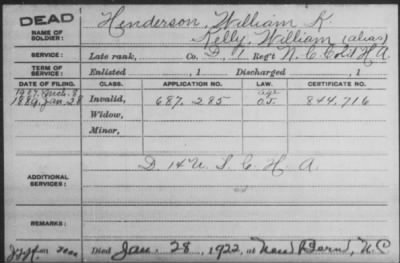 DEAD
NAME OF SOLDIER: Henderson, William K
Kelly, William (alias)
SERVICE: Late rank, Co. D, 1 Reg't N.C. Col'd H.A.
TERM OF SERVICE: Enlisted , 1 Discharged , 1
DATE OF FILING. CLASS. APPLICATION NO. LAW. CERTIFICATE NO.
1907. Mch. 8 age
1889, Jan. 28 Invalid, 687.285 05. 844.716
Widow,
Minor,
ADDITIONAL SERVICES: D. 14 U. S. C. H. A.
REMARKS:
Died Jan. 28, 1922, at New Bern, N.C.